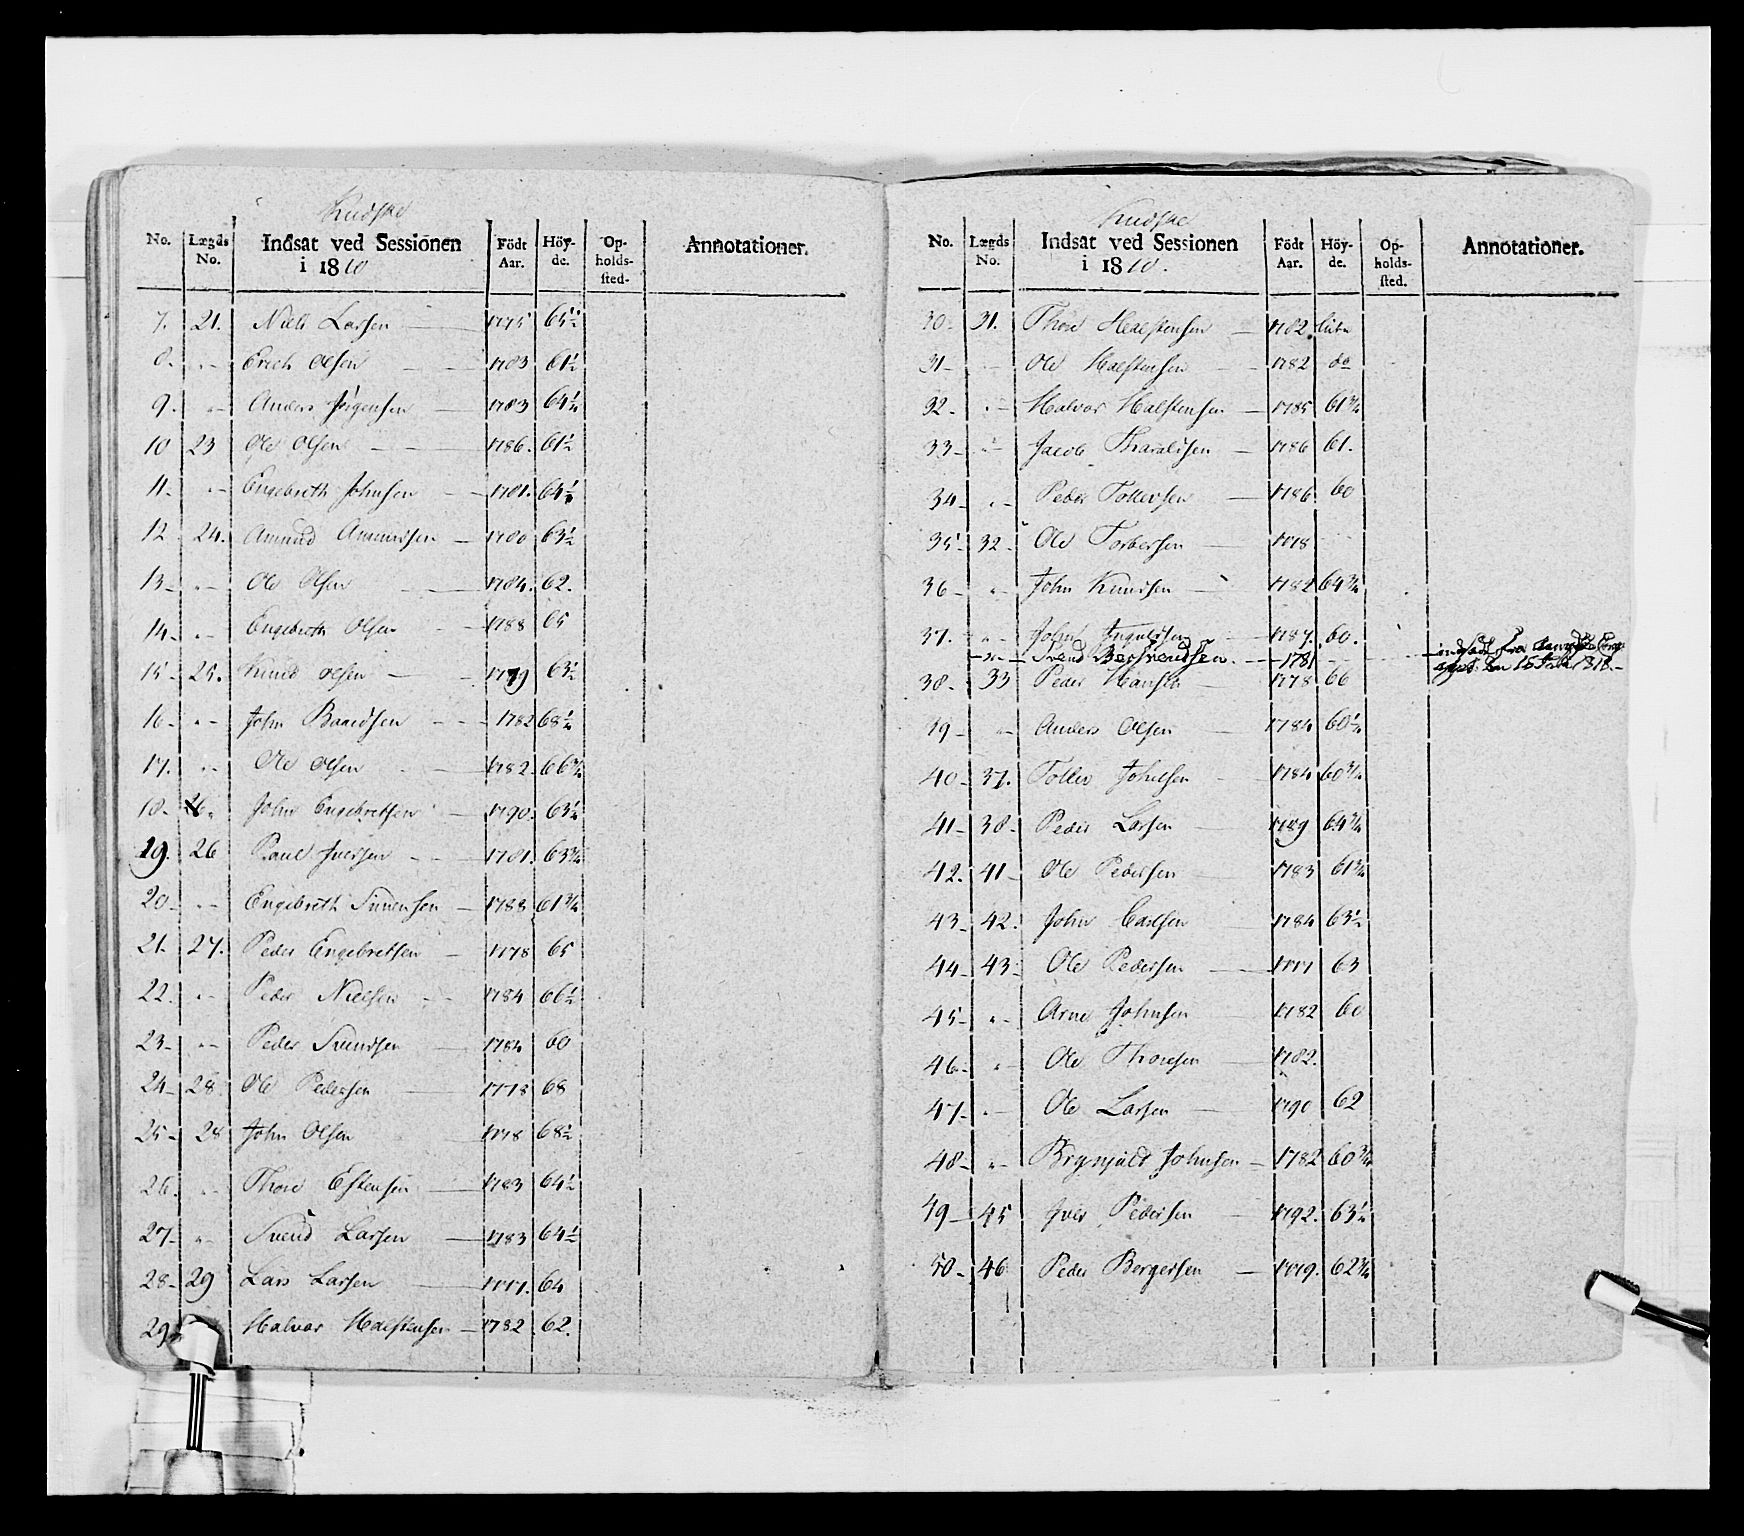 Kudske
No. Lægds No. Indsat ved Sessionen i 1810 Födt Aar. Höyde. Opholdssted. Annotationer.
7. 21. Niels Larsen 1775 65½
8. „ Erich Olsen 1783 61½
9. „ Anders Jörgensen 1783 64¼
10 23 Ole Olsen 1786. 61½
11. „ Engebreth Johnsen 1781. 64½
12 24. Amund Amundsen 1780 63½
13 „ Ole Olsen 1784. 62.
14 „ Engebreth Olsen 1788 65
15 25. Knud Olsen 1779 63½
16 „ John Baardsen 1782 68¼
17. „ Ole Olsen 1782. 66¾
18 „ John Engebretsen 1790. 63¼
19. 26 Paul Iversen 1781. 63¾
20 „ Engebreth Svensen 1788 61¾
21 27. Peder Engebretsen 1778 65
22. „ Peder Nielsen 1784 66½
23 „ Peder Svendsen 1784 60
24 28 Ole Pedersen 1778 68
25 28 John Olsen 1778 68½
26. „ Thore Estensen 1783 64½
27 „ Svend Larsen 1783 64½
28 29 Lars Larsen 1777. 64
29 Halvor Halstensen 1782. 62.
Kudske
No. Lægds No. Indsat ved Sessionen i 1810. Födt Aar. Höyde. Opholdssted. Annotationer.
30 31. Thore Halstensen 1782. liden
31 „ Ole Halstensen 1782 do
32 „ Halvor Halstensen 1785 61¾
33 „ Jacob Tharaldsen 1786 61.
34 „ Peder Tollevsen 1786 60
35 32 Ole Torbersen 1778
36 „ John Knudsen 1782 64¾
37. „ John Ingulfsen 1787. 60.
„ Svend 1781 indsadt fra
15 1818
38 33 Peder Hansen 1778 66
39 „ Anders Olsen 1784 60½
40 37. Tollev Johnsen 1784 60¾
41 38 Peder Larsen 1789 64¾
42. 41 Ole Pedersen 1783 61¾
43 42. John Carlsen 1784 63½
44 43 Ole Pedersen 1777 63
45 „ Arne Johnsen 1782 60
46 „ Ole Thoresen 1782.
47 „ Ole Larsen 1790 62
48 „ Brynjuld Johnsen 1782 60¾
49 45 Iver Pedersen 1792. 63¼
50 46 Peder Bergersen 1779. 62¾